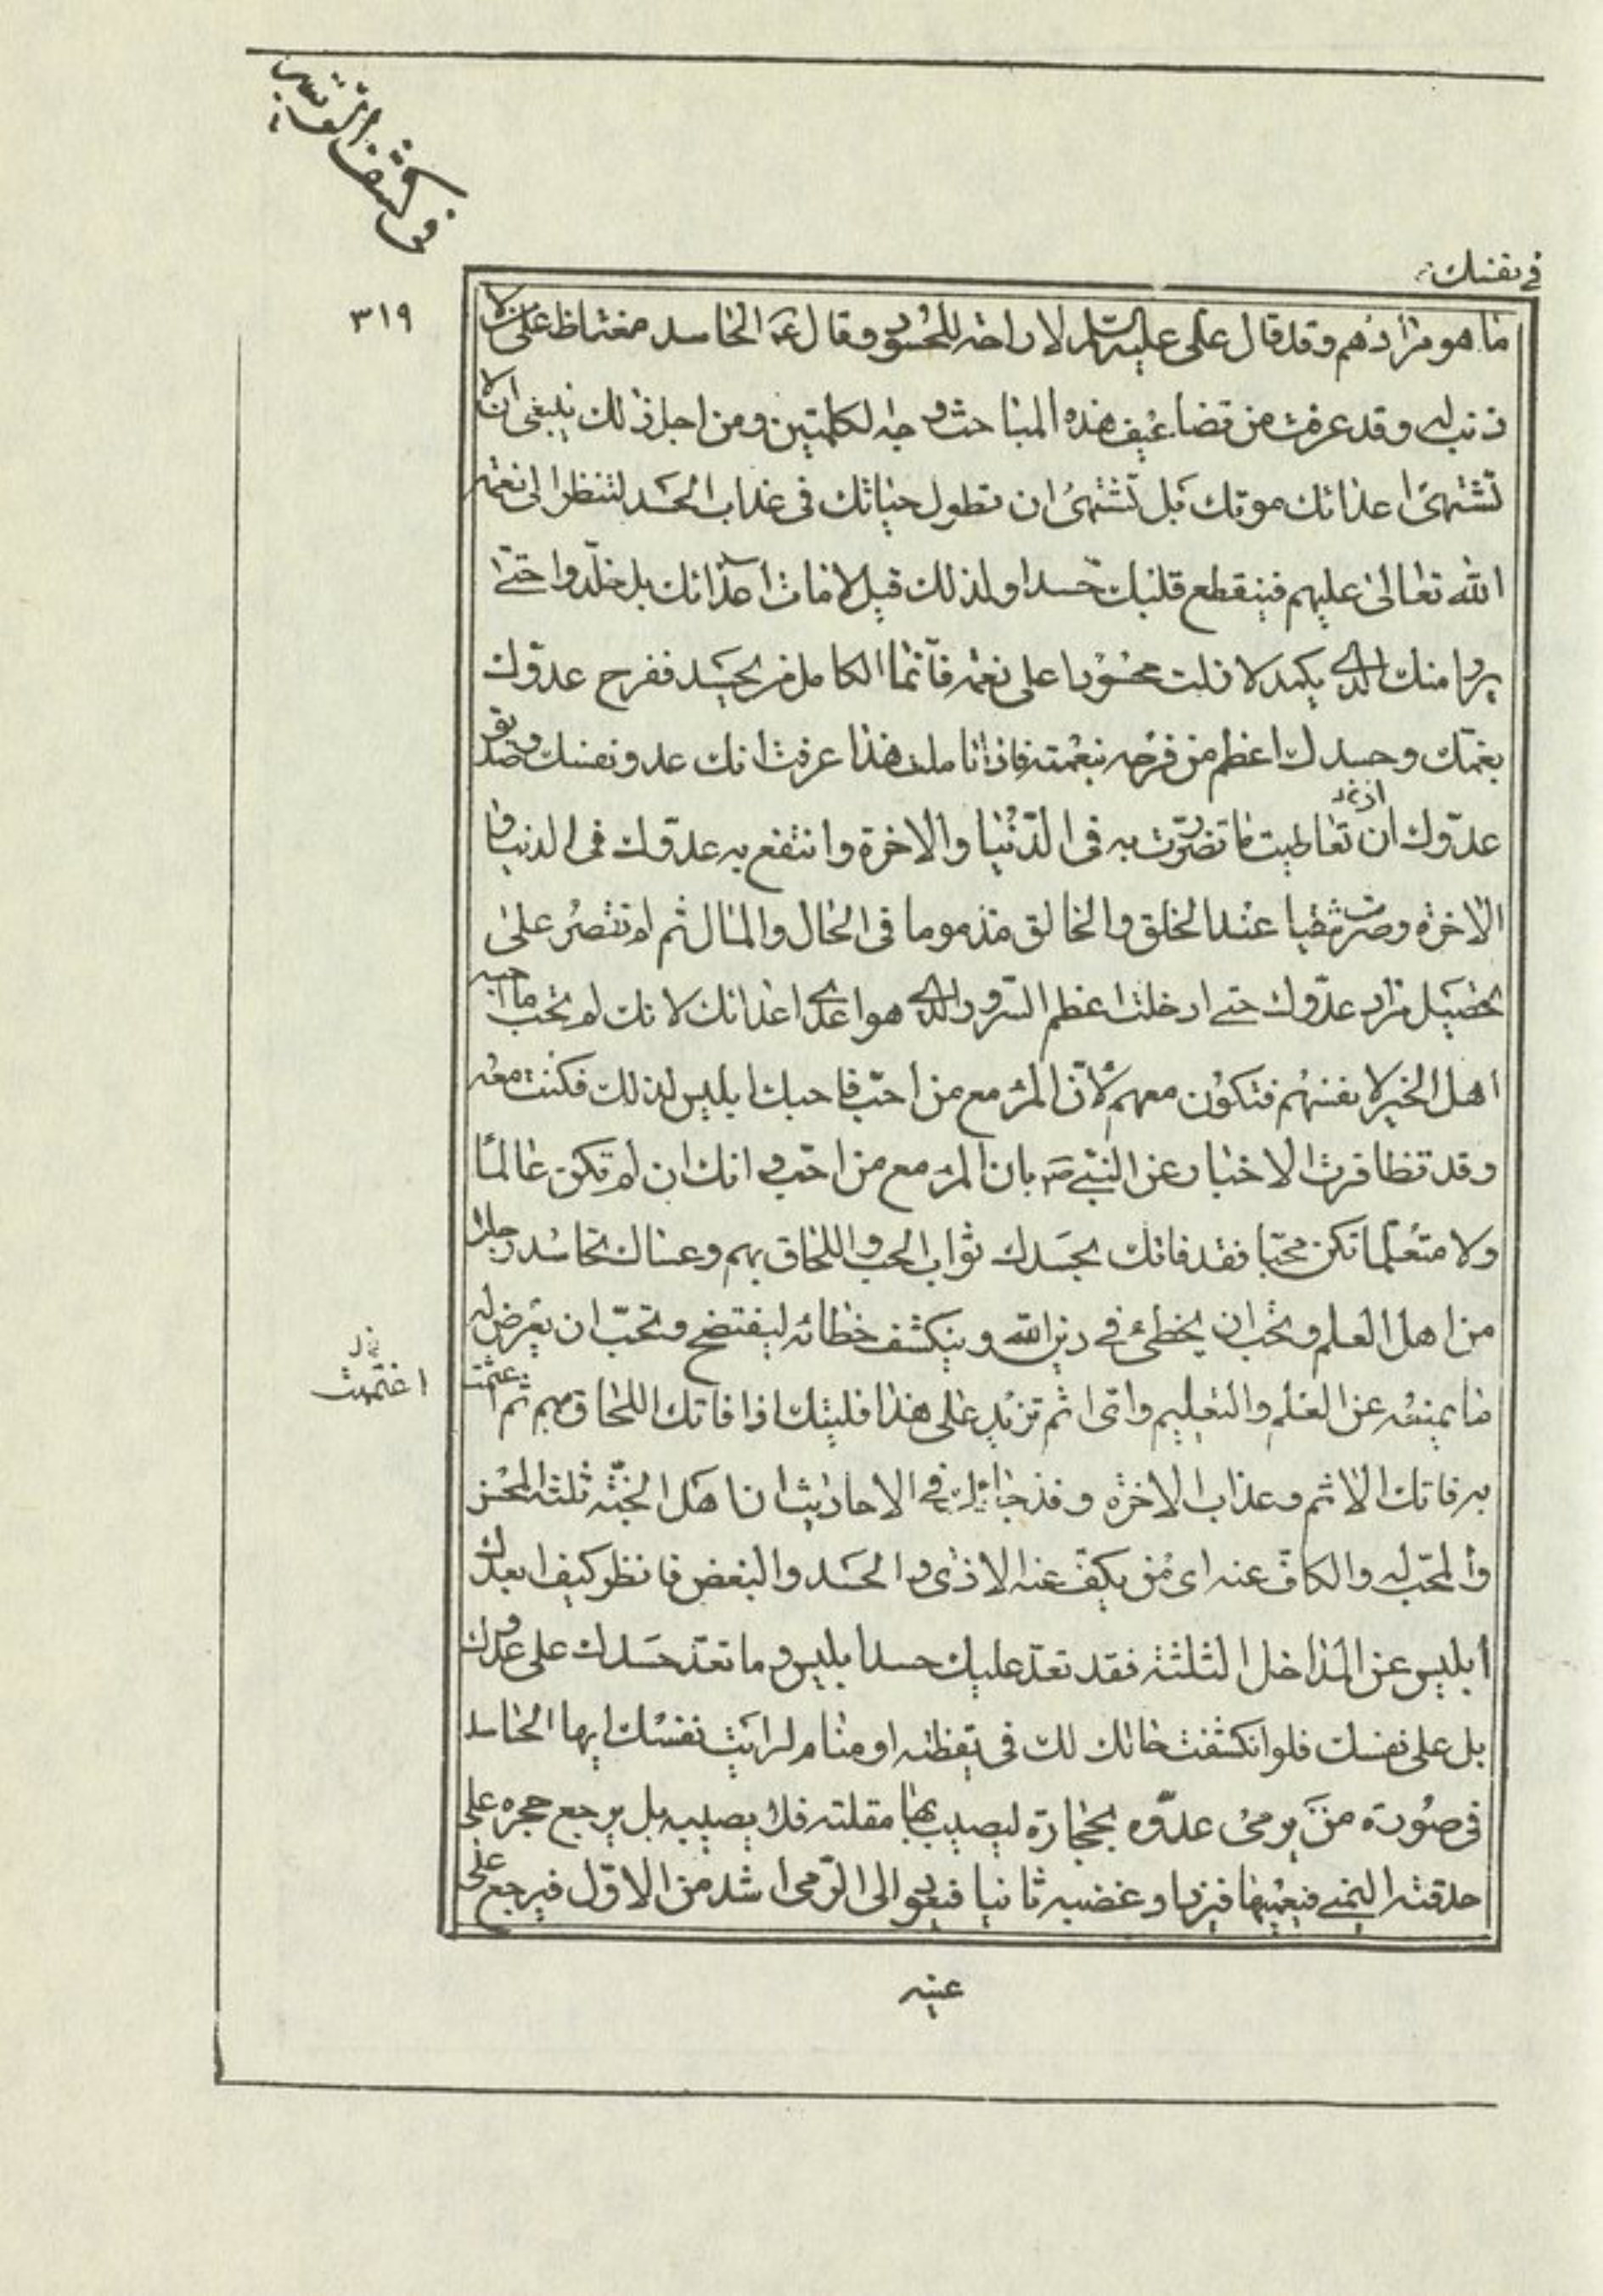 في كشف
٣١٩
في نفسك
ما هو مرادهم وقد قال علي عليه السلام لا راحة للحسود وقال ع الحاسد مغتاظ على من لا
ذنب له وقد عرفت من تضاعيف هذه المباحث وجه الكلمتين ومن اجل ذلك ينبغي ان لا
تشتهي اعدائك موتك بل تشتهي ان تطول حياتك في عذاب الحسد لتنظر الى نعمة
الله تعالى عليهم فينقطع قلبك حسدا ولذلك قيل لا مات اعدائك بل خلدوا حتى
يروا منك الذي يكمد لا زلت محسودا على نعمة فانما الكامل من يحسد ففرح عدوك
بغمك وحسدك اعظم من فرحه بنعمته فاذا تاملت هذا عرفت انك عدو نفسك وصديق
عدوك ان تعاطيت ما تضررت به في الدنيا والاخرة وانتفع به عدوك في الدنيا و
الاخرة وصرت شقيا عند الخلق والخالق مذموما في الحال والمال ثم لم تقتصر على
تحصيل مراد عدوك حتى ادخلت اعظم السرور الذي هو اعدى اعدائك لانك لم تحب ما احبه
اهل الخير لانفسهم فتكون معهم لان المرء مع من احب فاحبك ابليس لذلك فكنت معه
وقد تظافرت الاخبار عن النبي ص بان المرء مع من احب وانك ان لم تكن عالما
ولا متعلما تكن محبا فقد فاتك بحسدك ثواب الحب واللحاق بهم وعساك تحاسد رجلا
من اهل العلم وتحب ان يخطئ في دين الله وينكشف خطائه ليفتضح وتحب ان يعرض له
ما يمنعه عن العلم والتعليم واي اثم تزيد على هذا فليتك اذا فاتك اللحاق بهم ثم
اغتممت
به فاتك الاثم وعذاب الاخرة وقد جاء في الاحاديث ان اهل الجنة ثلثة المحسن
والمحب له والكاف عنه اي من يكف عنه الاذى والحسد والبغض فانظر كيف ابعدك
ابليس عن المداخل الثلثة فقد نفذ عليك حسد ابليس وما نفذ حسدك على عدوك
بل على نفسك فلو انكشفت حالك لك في يقظة او منام لرايت نفسك ايها الحاسد
في صورة من يرمي عدوه بحجارة ليصيب بها مقلته فلا يصيبه بل يرجع حجره على
حدقته اليمنى فيعميها فيزداد غضبه ثانيا فيعود الى الرمي اشد من الاول فيرجع على
عينه